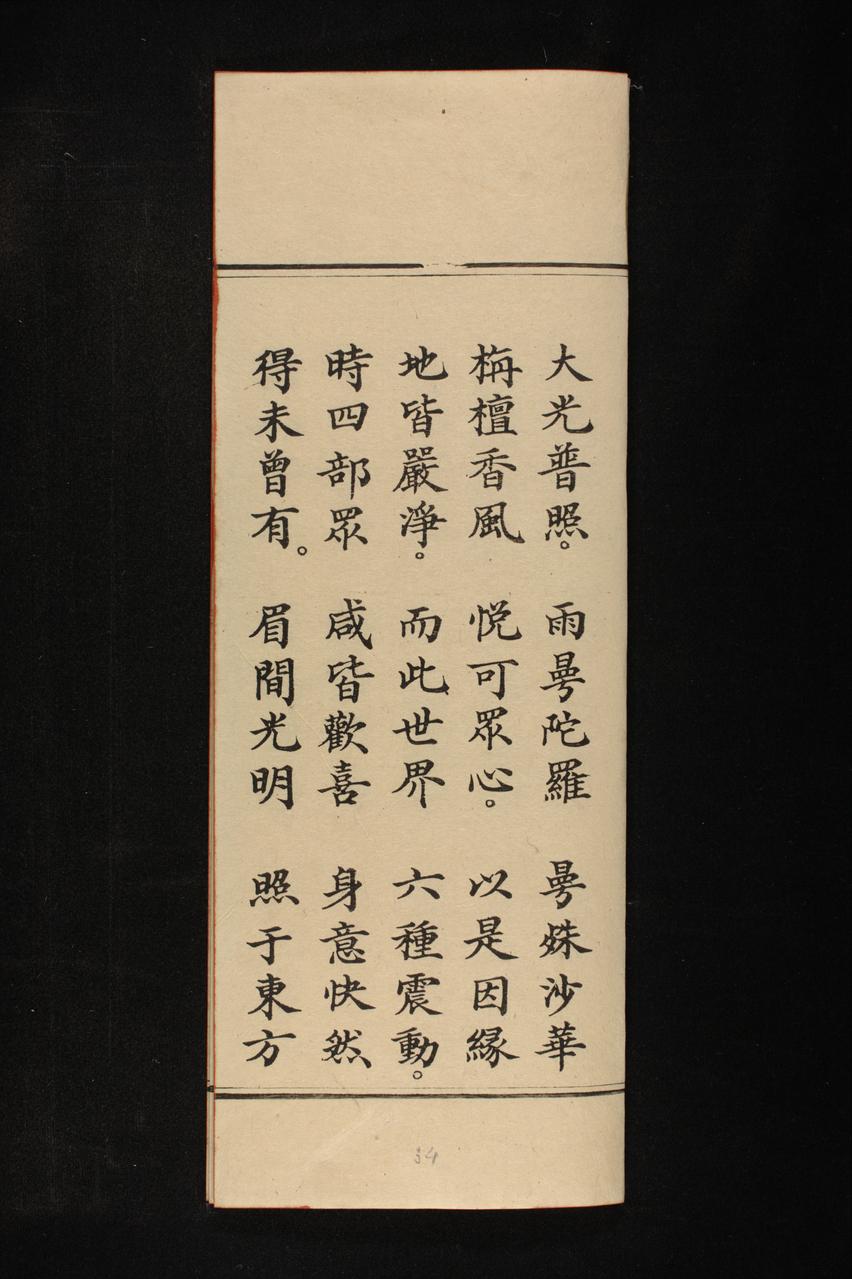 大光普照。 雨曼陀羅 曼殊沙華
栴檀香風 悅可眾心。 以是因緣
地皆嚴淨。 而此世界 六種震動。
時四部眾 咸皆歡喜 身意快然
得未曾有。 眉間光明 照于東方
34